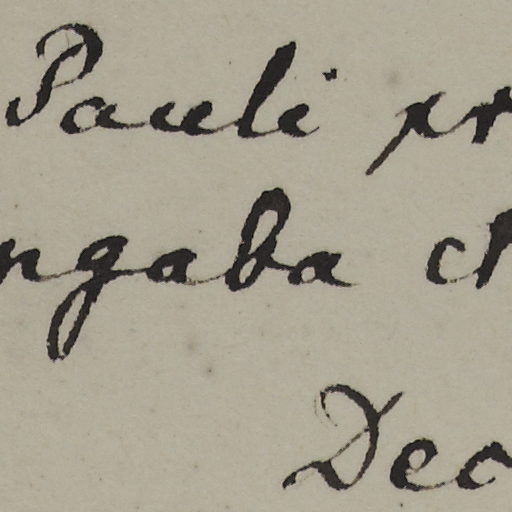 Pauli pr
ngaba et
Deo